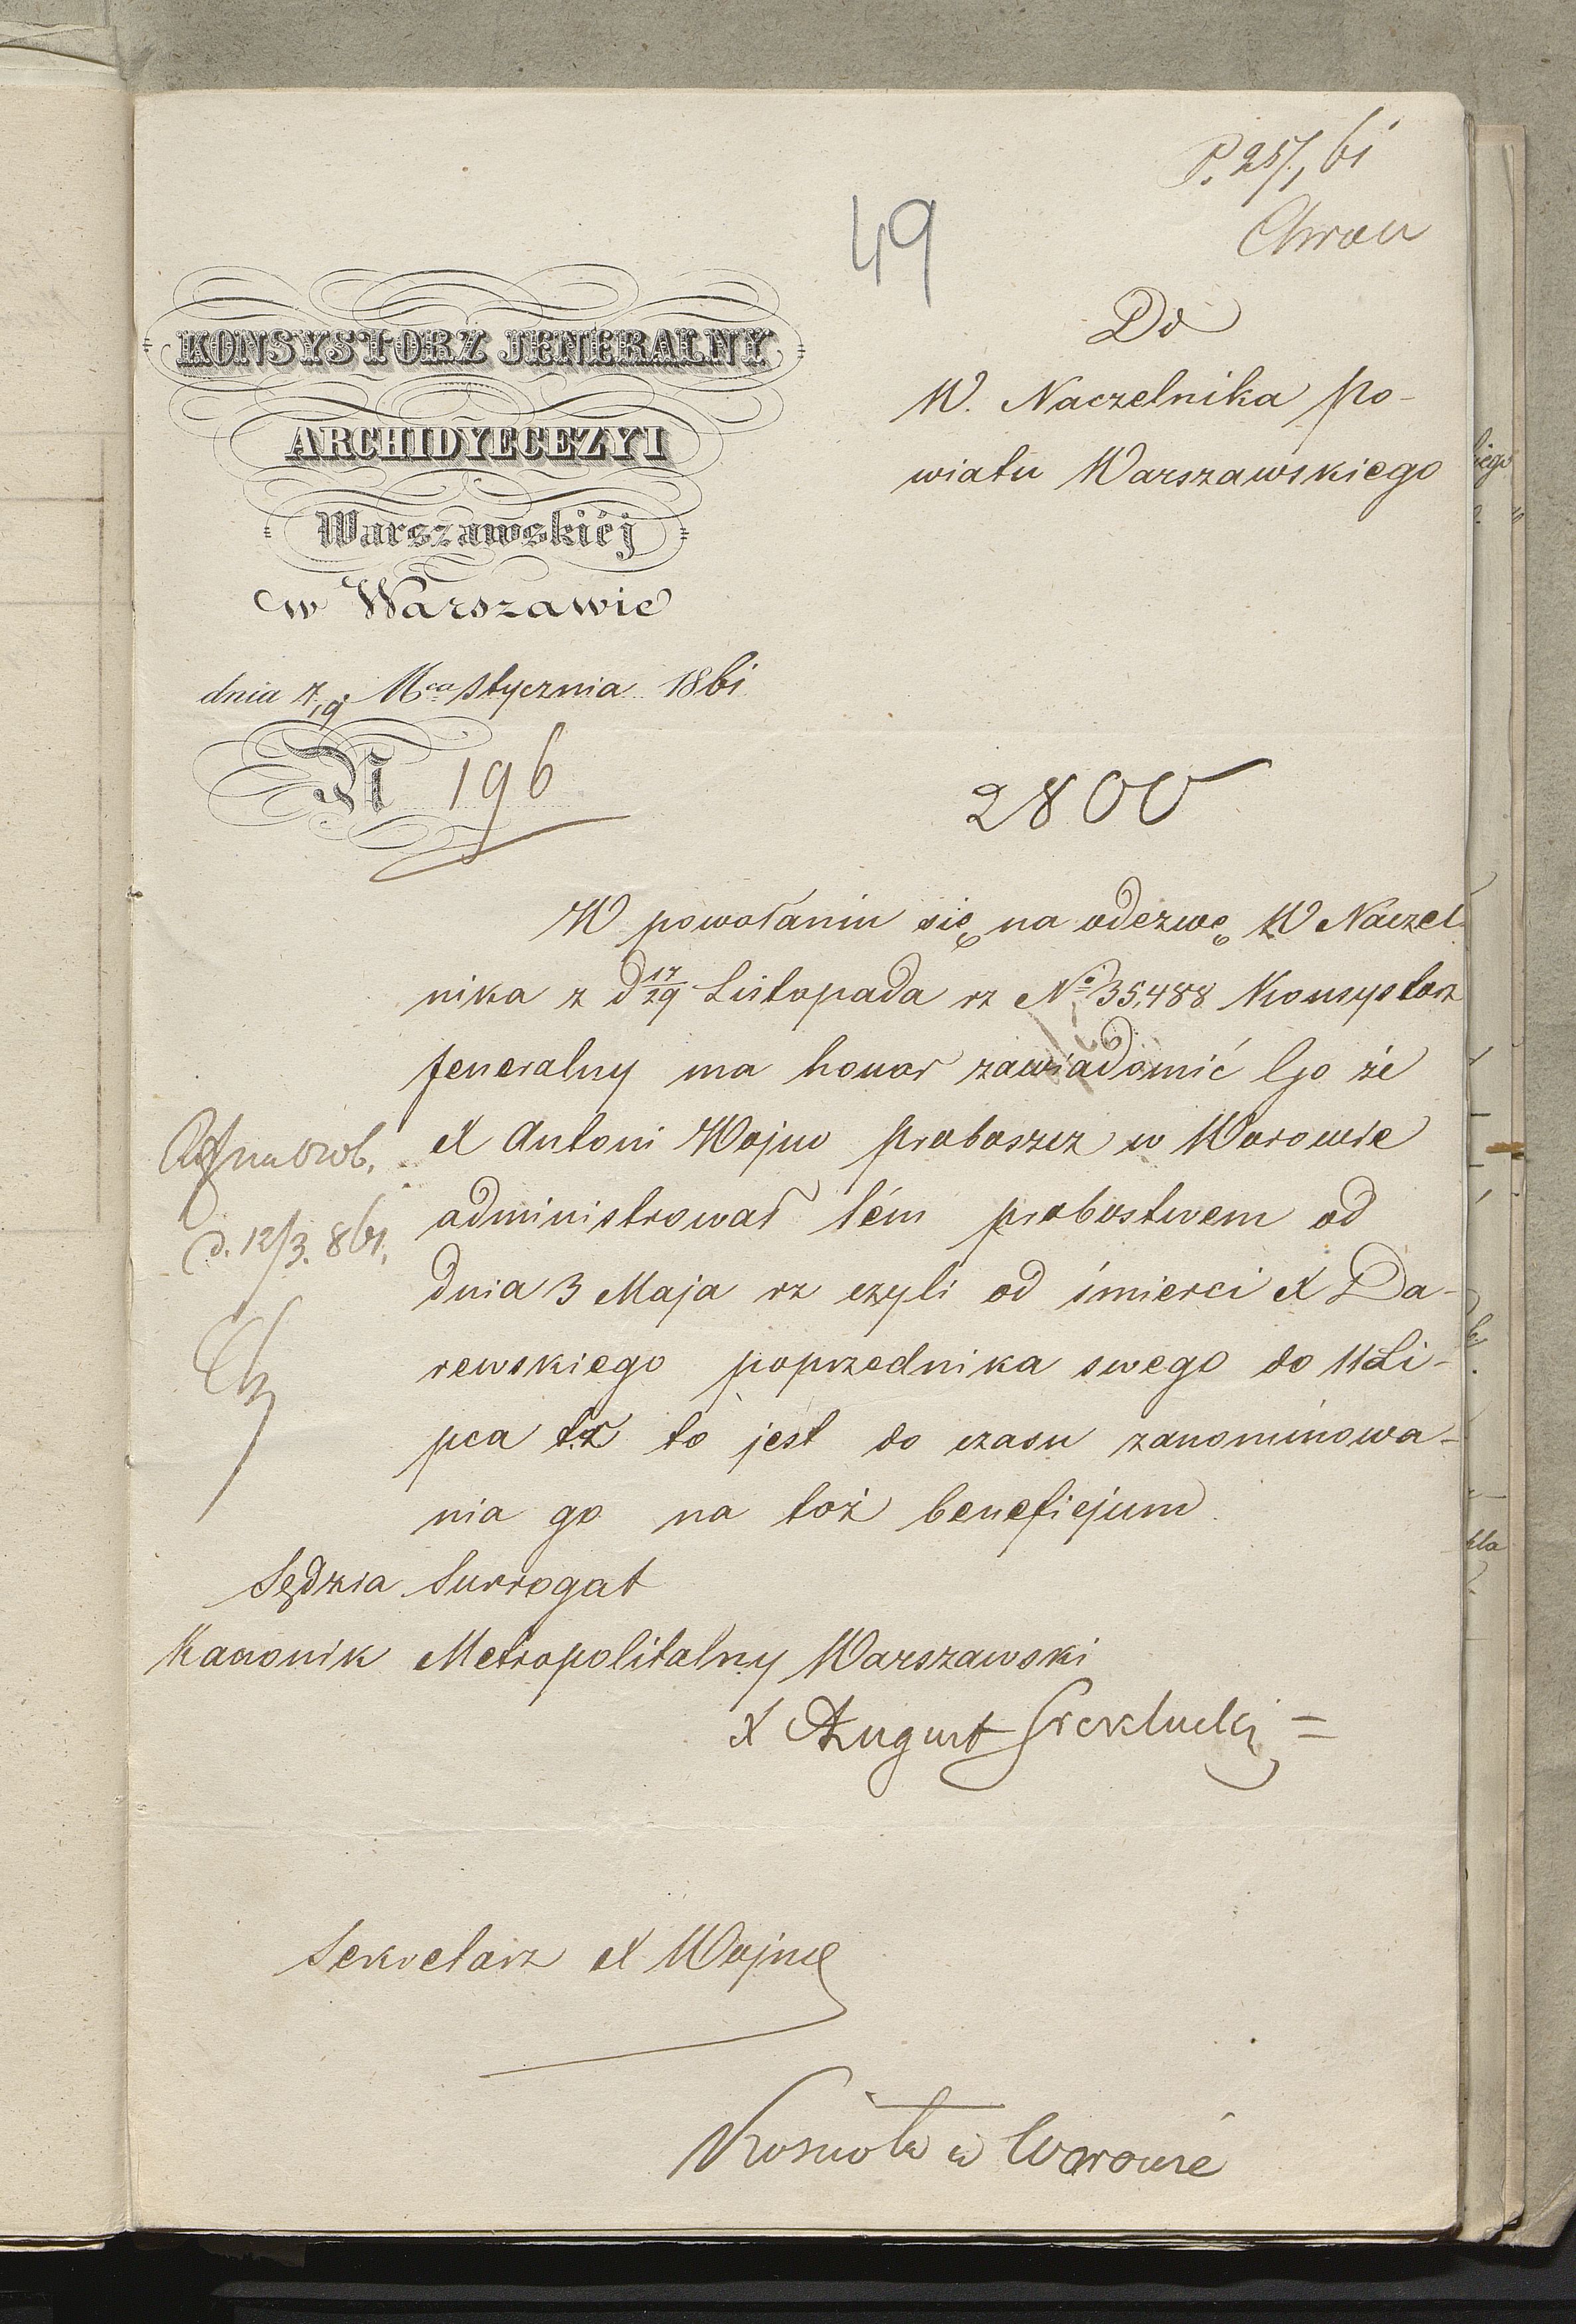 P. 25/1 61
49
KONSYSTORZ JENERALNY
ARCHIDYECEZYI
Warszawskiéj
w Warszawie
dnia 7/19 Mca Stycznia 1861
N 196
Do
W. Naczelnika Po-
wiatu Warszawskiego
2800
W powołaniu się na odezwę W Naczel-
nika z d 17/29 Listopada rz No 35,488 Konsystorz
Jeneralny ma honor zawiadomić Go że
X Antoni Wojno Proboszcz w Worowie
administrował tém probostwem od
dnia 3 Maja rz czyli od śmierci X Da-
rewskiego poprzednika swego do 11 Li-
pca tr to jest do czasu zanominowa-
nia go na toż beneficjum.
d. 12/3. 861.
Sędzia Surrogat
Kanonik Metropolitalny Warszawski
X August
Sekretarz X Wojno
Kościoła w Worowie